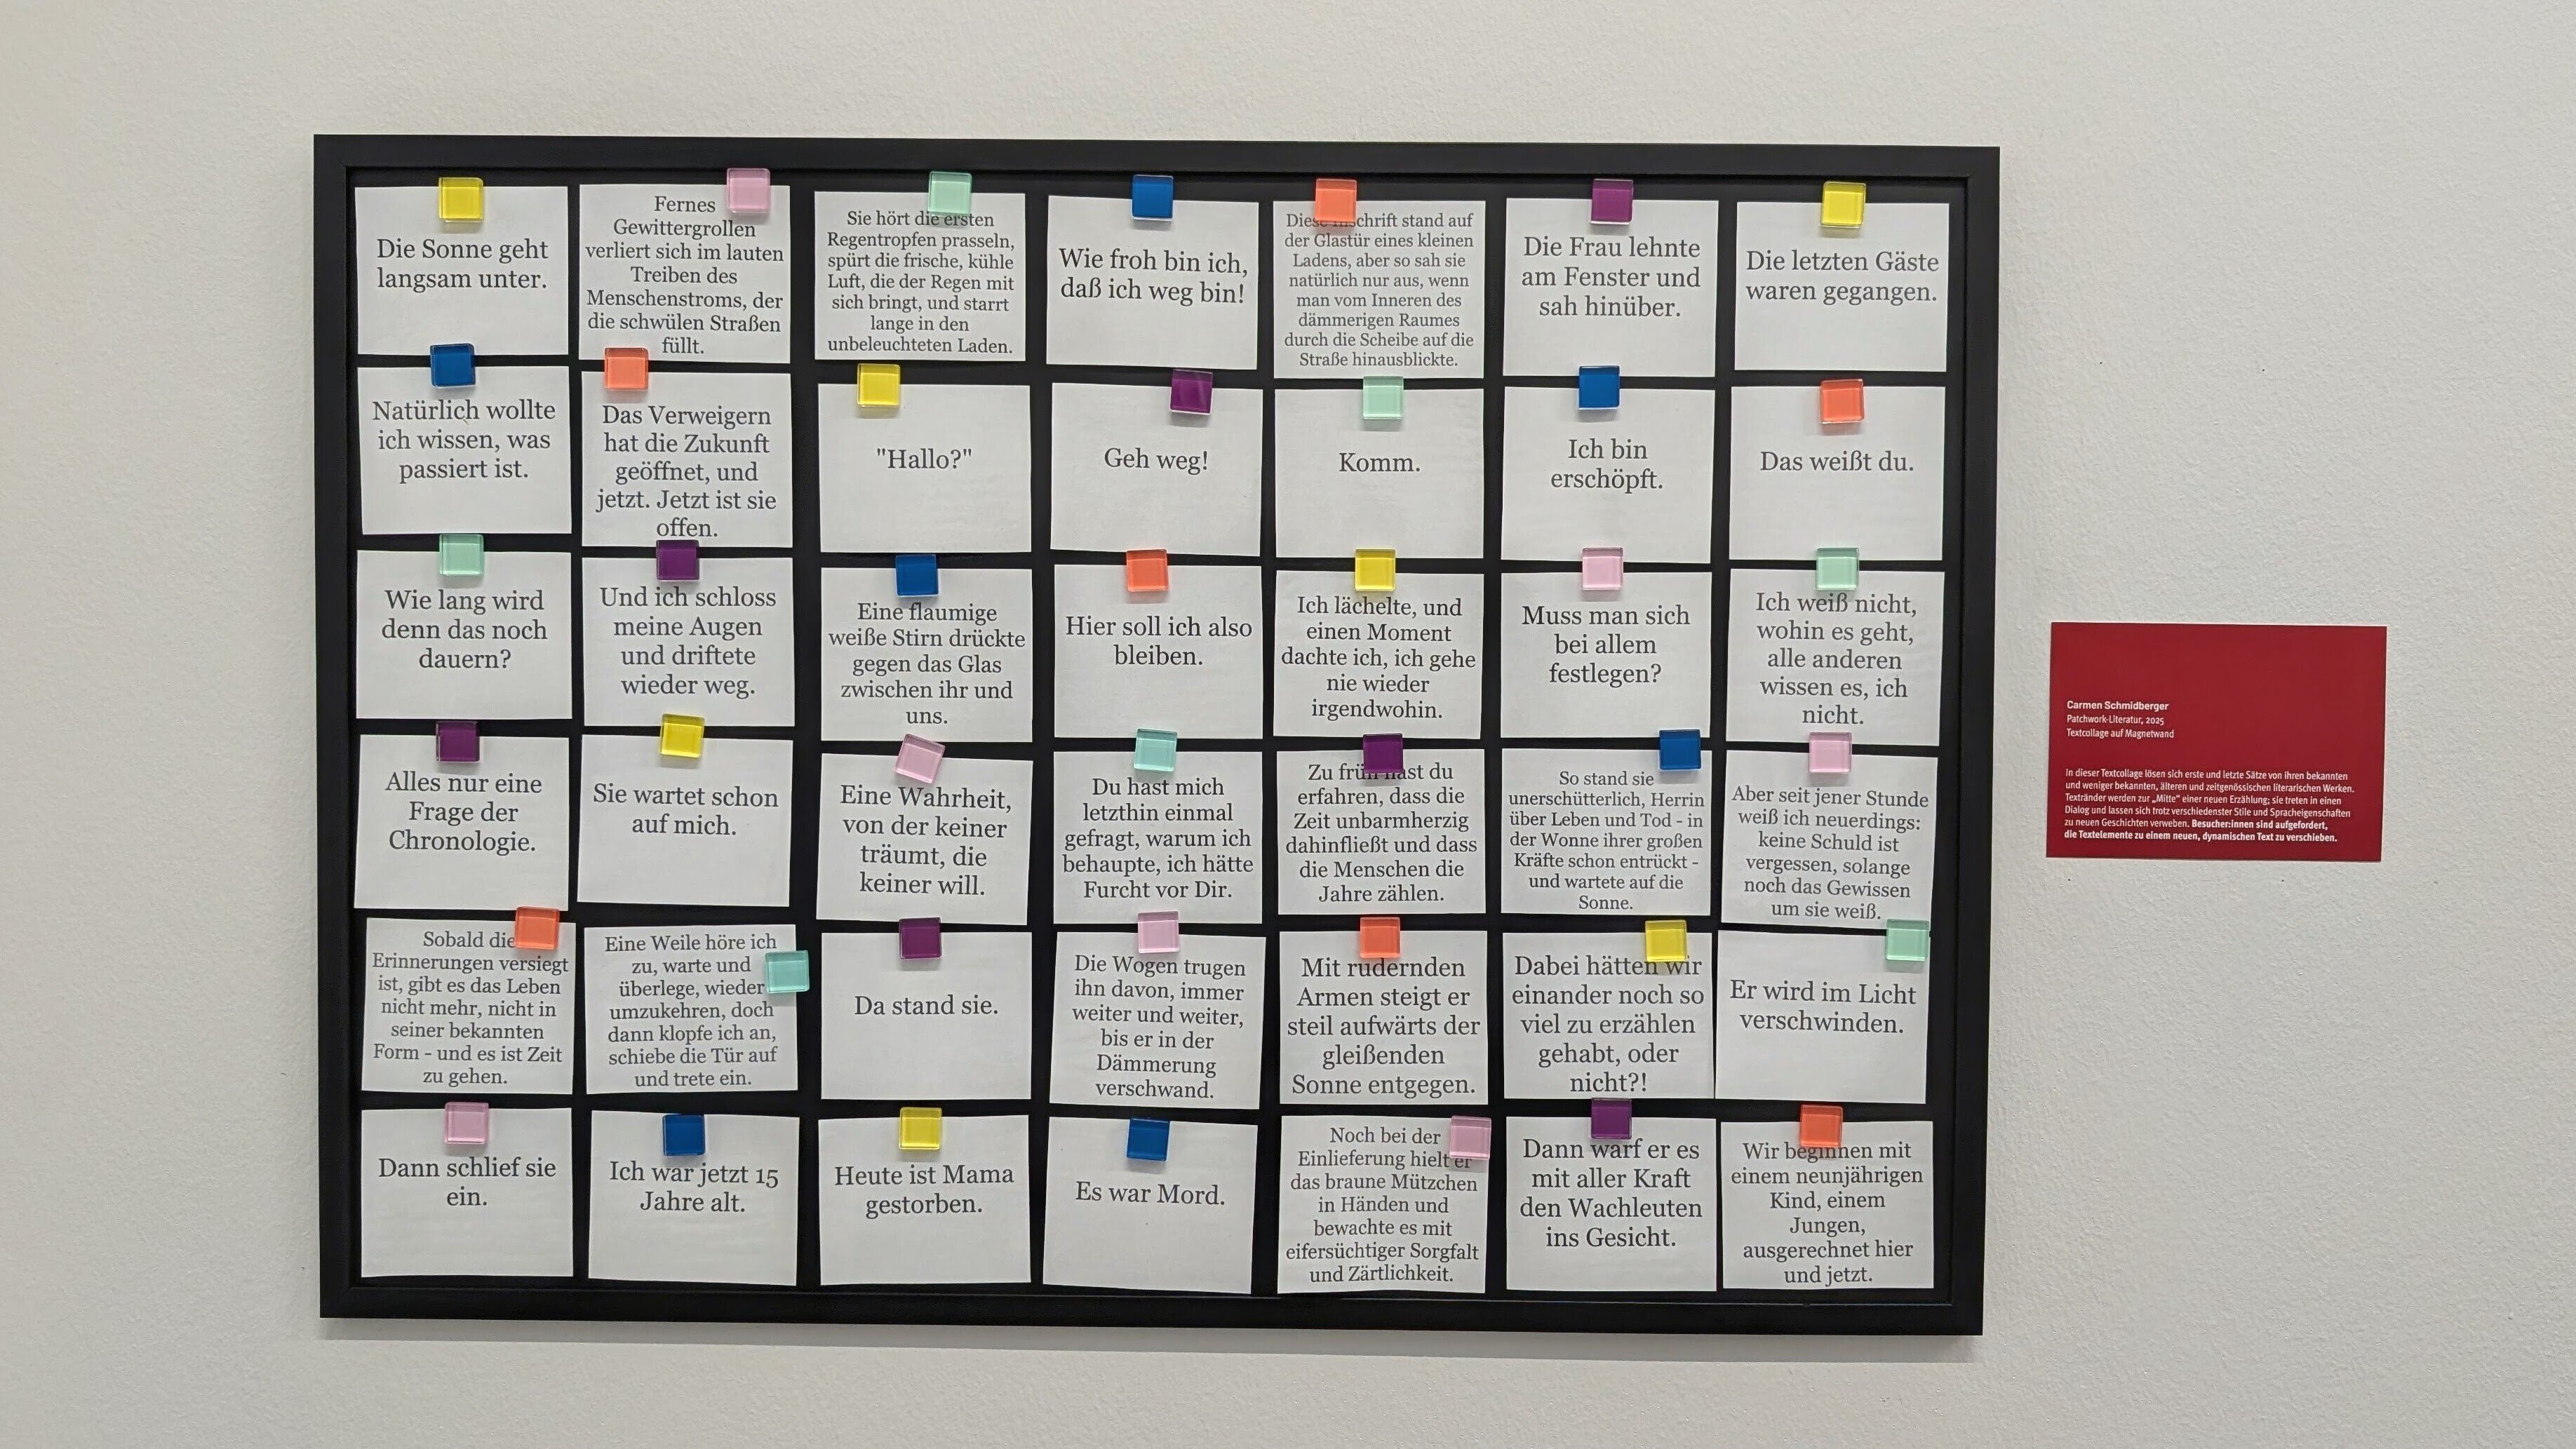 Die Sonne geht
langsam unter.
Fernes
Gewittergrollen
verliert sich im lauten
Treiben des
Menschenstroms, der
die schwülen Straßen
füllt.
Sie hört die ersten
Regentropfen prasseln,
spürt die frische, kühle
Luft, die der Regen mit
sich bringt, und starrt
lange in den
unbeleuchteten Laden.
Wie froh bin ich,
daß ich weg bin!
Diese Inschrift stand auf
der Glastür eines kleinen
Ladens, aber so sah sie
natürlich nur aus, wenn
man vom Inneren des
dämmerigen Raumes
durch die Scheibe auf die
Straße hinausblickte.
Die Frau lehnte
am Fenster und
sah hinüber.
Die letzten Gäste
waren gegangen.
Natürlich wollte
ich wissen, was
passiert ist.
Das Verweigern
hat die Zukunft
geöffnet, und
jetzt. Jetzt ist sie
offen.
"Hallo?"
Geh weg!
Komm.
Ich bin
erschöpft.
Das weißt du.
Wie lang wird
denn das noch
dauern?
Und ich schloss
meine Augen
und driftete
wieder weg.
Eine flaumige
weiße Stirn drückte
gegen das Glas
zwischen ihr und
uns.
Hier soll ich also
bleiben.
Ich lächelte, und
einen Moment
dachte ich, ich gehe
nie wieder
irgendwohin.
Muss man sich
bei allem
festlegen?
Ich weiß nicht,
wohin es geht,
alle anderen
wissen es, ich
nicht.
Alles nur eine
Frage der
Chronologie.
Sie wartet schon
auf mich.
Eine Wahrheit,
von der keiner
träumt, die
keiner will.
Du hast mich
letzthin einmal
gefragt, warum ich
behaupte, ich hätte
Furcht vor Dir.
Zu früh hast du
erfahren, dass die
Zeit unbarmherzig
dahinfließt und dass
die Menschen die
Jahre zählen.
So stand sie
unerschütterlich, Herrin
über Leben und Tod - in
der Wonne ihrer großen
Kräfte schon entrückt -
und wartete auf die
Sonne.
Aber seit jener Stunde
weiß ich neuerdings:
keine Schuld ist
vergessen, solange
noch das Gewissen
um sie weiß.
Sobald die
Erinnerungen versiegt
ist, gibt es das Leben
nicht mehr, nicht in
seiner bekannten
Form - und es ist Zeit
zu gehen.
Eine Weile höre ich
zu, warte und
überlege, wieder
umzukehren, doch
dann klopfe ich an,
schiebe die Tür auf
und trete ein.
Da stand sie.
Die Wogen trugen
ihn davon, immer
weiter und weiter,
bis er in der
Dämmerung
verschwand.
Mit rudernden
Armen steigt er
steil aufwärts der
gleißenden
Sonne entgegen.
Dabei hätten wir
einander noch so
viel zu erzählen
gehabt, oder
nicht?!
Er wird im Licht
verschwinden.
Dann schlief sie
ein.
Ich war jetzt 15
Jahre alt.
Heute ist Mama
gestorben.
Es war Mord.
Noch bei der
Einlieferung hielt er
das braune Mützchen
in Händen und
bewachte es mit
eifersüchtiger Sorgfalt
und Zärtlichkeit.
Dann warf er es
mit aller Kraft
den Wachleuten
ins Gesicht.
Wir beginnen mit
einem neunjährigen
Kind, einem
Jungen,
ausgerechnet hier
und jetzt.
Carmen Schmidberger
Patchwork-Literatur, 2025
Textcollage auf Magnetwand
In dieser Textcollage lösen sich erste und letzte Sätze von ihren bekannten
und weniger bekannten, älteren und zeitgenössischen literarischen Werken.
Textränder werden zur „Mitte“ einer neuen Erzählung; sie treten in einen
Dialog und lassen sich trotz verschiedenster Stile und Spracheigenschaften
zu neuen Geschichten verweben. Besucher:innen sind aufgefordert,
die Textelemente zu einem neuen, dynamischen Text zu verschieben.